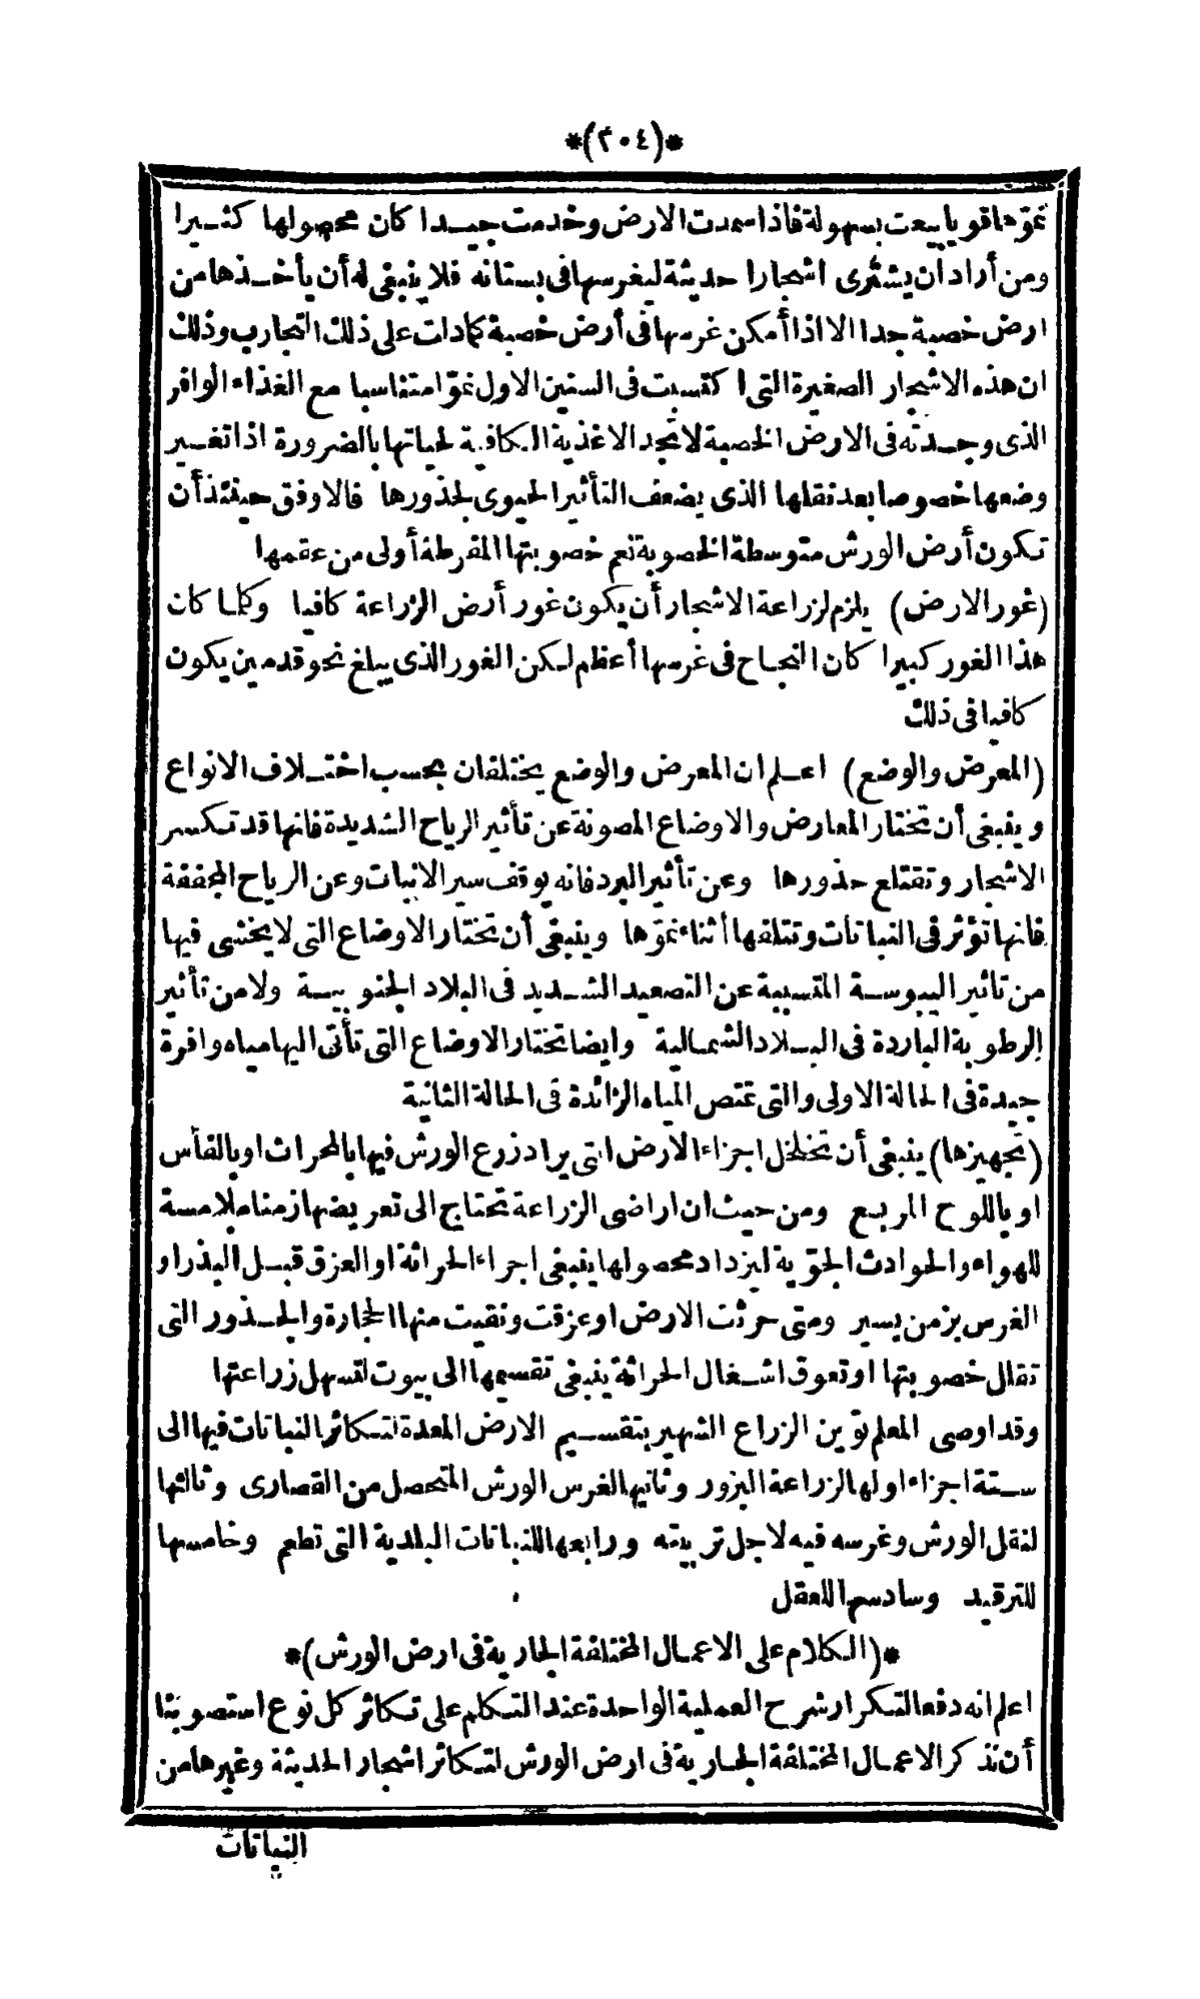 *(٣٠٤)*
نموّها قويا بيعت بسهولة فاذا سمدت الارض وخدمت جيدا كان محصولها كثيرا
ومن أراد أن يشترى اشجارا حديثة ليغرسها فى بستانه فلا ينبغى له أن يأخذها من
ارض خصبة جدا الا اذا أمكن غرسها فى أرض خصبة كما دلت على ذلك التجارب وذلك
ان هذه الاشجار الصغيرة التى اكتسبت فى السنين الاول نموّا متناسبا مع الغذاء الوافر
الذى وجدته فى الارض الخصبة لا تجد الاغذية الكافية لحياتها بالضرورة اذا تغير
وضعها خصوصا بعد نقلها الذى يضعف التأثير الحيوى لجذورها فالاوفق حينئذ أن
تكون أرض الورش متوسطة الخصوبة نعم خصوبتها المفرطة أولى من عقمها
(غور الارض) يلزم لزراعة الاشجار أن يكون غور أرض الزراعة كافيا وكلما كان
هذا الغور كبيرا كان النجاح فى غرسها أعظم لكن الغور الذى يبلغ نحو قدمين يكون
كافيا فى ذلك
(المعرض والوضع) اعلم ان المعرض والوضع يختلفان بحسب اختلاف الانواع
وينبغى أن تختار المعارض والاوضاع المصونة عن تأثير الرياح الشديدة فانها قد تكسر
الاشجار وتقتلع جذورها وعن تأثير البرد فانه يوقف سير الانبات وعن الرياح المجففة
فانها تؤثر فى النباتات وتتلفها أثناء نموّها وينبغى أن تختار الاوضاع التى لا يخشى فيها
من تاثير اليبوسة المتسببة عن التصعيد الشديد فى البلاد الجنوبية ولا من تأثير
الرطوبة الباردة فى البلاد الشمالية وايضا تختار الاوضاع التى تأتى اليها مياه وافرة
جيدة فى الحالة الاولى والتى تمتص المياه الزائدة فى الحالة الثانية
(تجهيزها) ينبغى أن تخلخل اجزاء الارض التى يراد زرع الورش فيها بالمحراث او بالفأس
او باللوح المربع ومن حيث ان اراضى الزراعة تحتاج الى تعريضها زمنا ملامسة
للهواء والحوادث الجوّية ليزداد محصولها ينبغى اجراء الحراثة او العزق قبل البذر او
الغرس بزمن يسير ومتى حرثت الارض او عزقت ونقيت منها الحجارة والجذور التى
تقلل خصوبتها او تعوق اشغال الحراثة ينبغى تقسيمها الى بيوت لتسهل زراعتها
وقد اوصى المعلم توّين الزراع الشهير بتقسيم الارض المعدة لتكاثر النباتات فيها الى
ستة اجزاء اولها لزراعة البزور وثانيها لغرس الورش المتحصل من القصارى وثالثها
لنقل الورش وغرسه فيه لاجل تربيته ورابعها للنباتات البلدية التى تطعم وخامسها
للترقيد وسادسها للعقل
*(الكلام على الاعمال المختلفة الجارية فى ارض الورش)*
اعلم انه دفعا لتكرار شرح العملية الواحدة عند التكلم على تكاثر كل نوع استصوبنا
أن نذكر الاعمال المختلفة الجارية فى ارض الورش لتكاثر اشجار الحديثة وغيرها من
النباتات